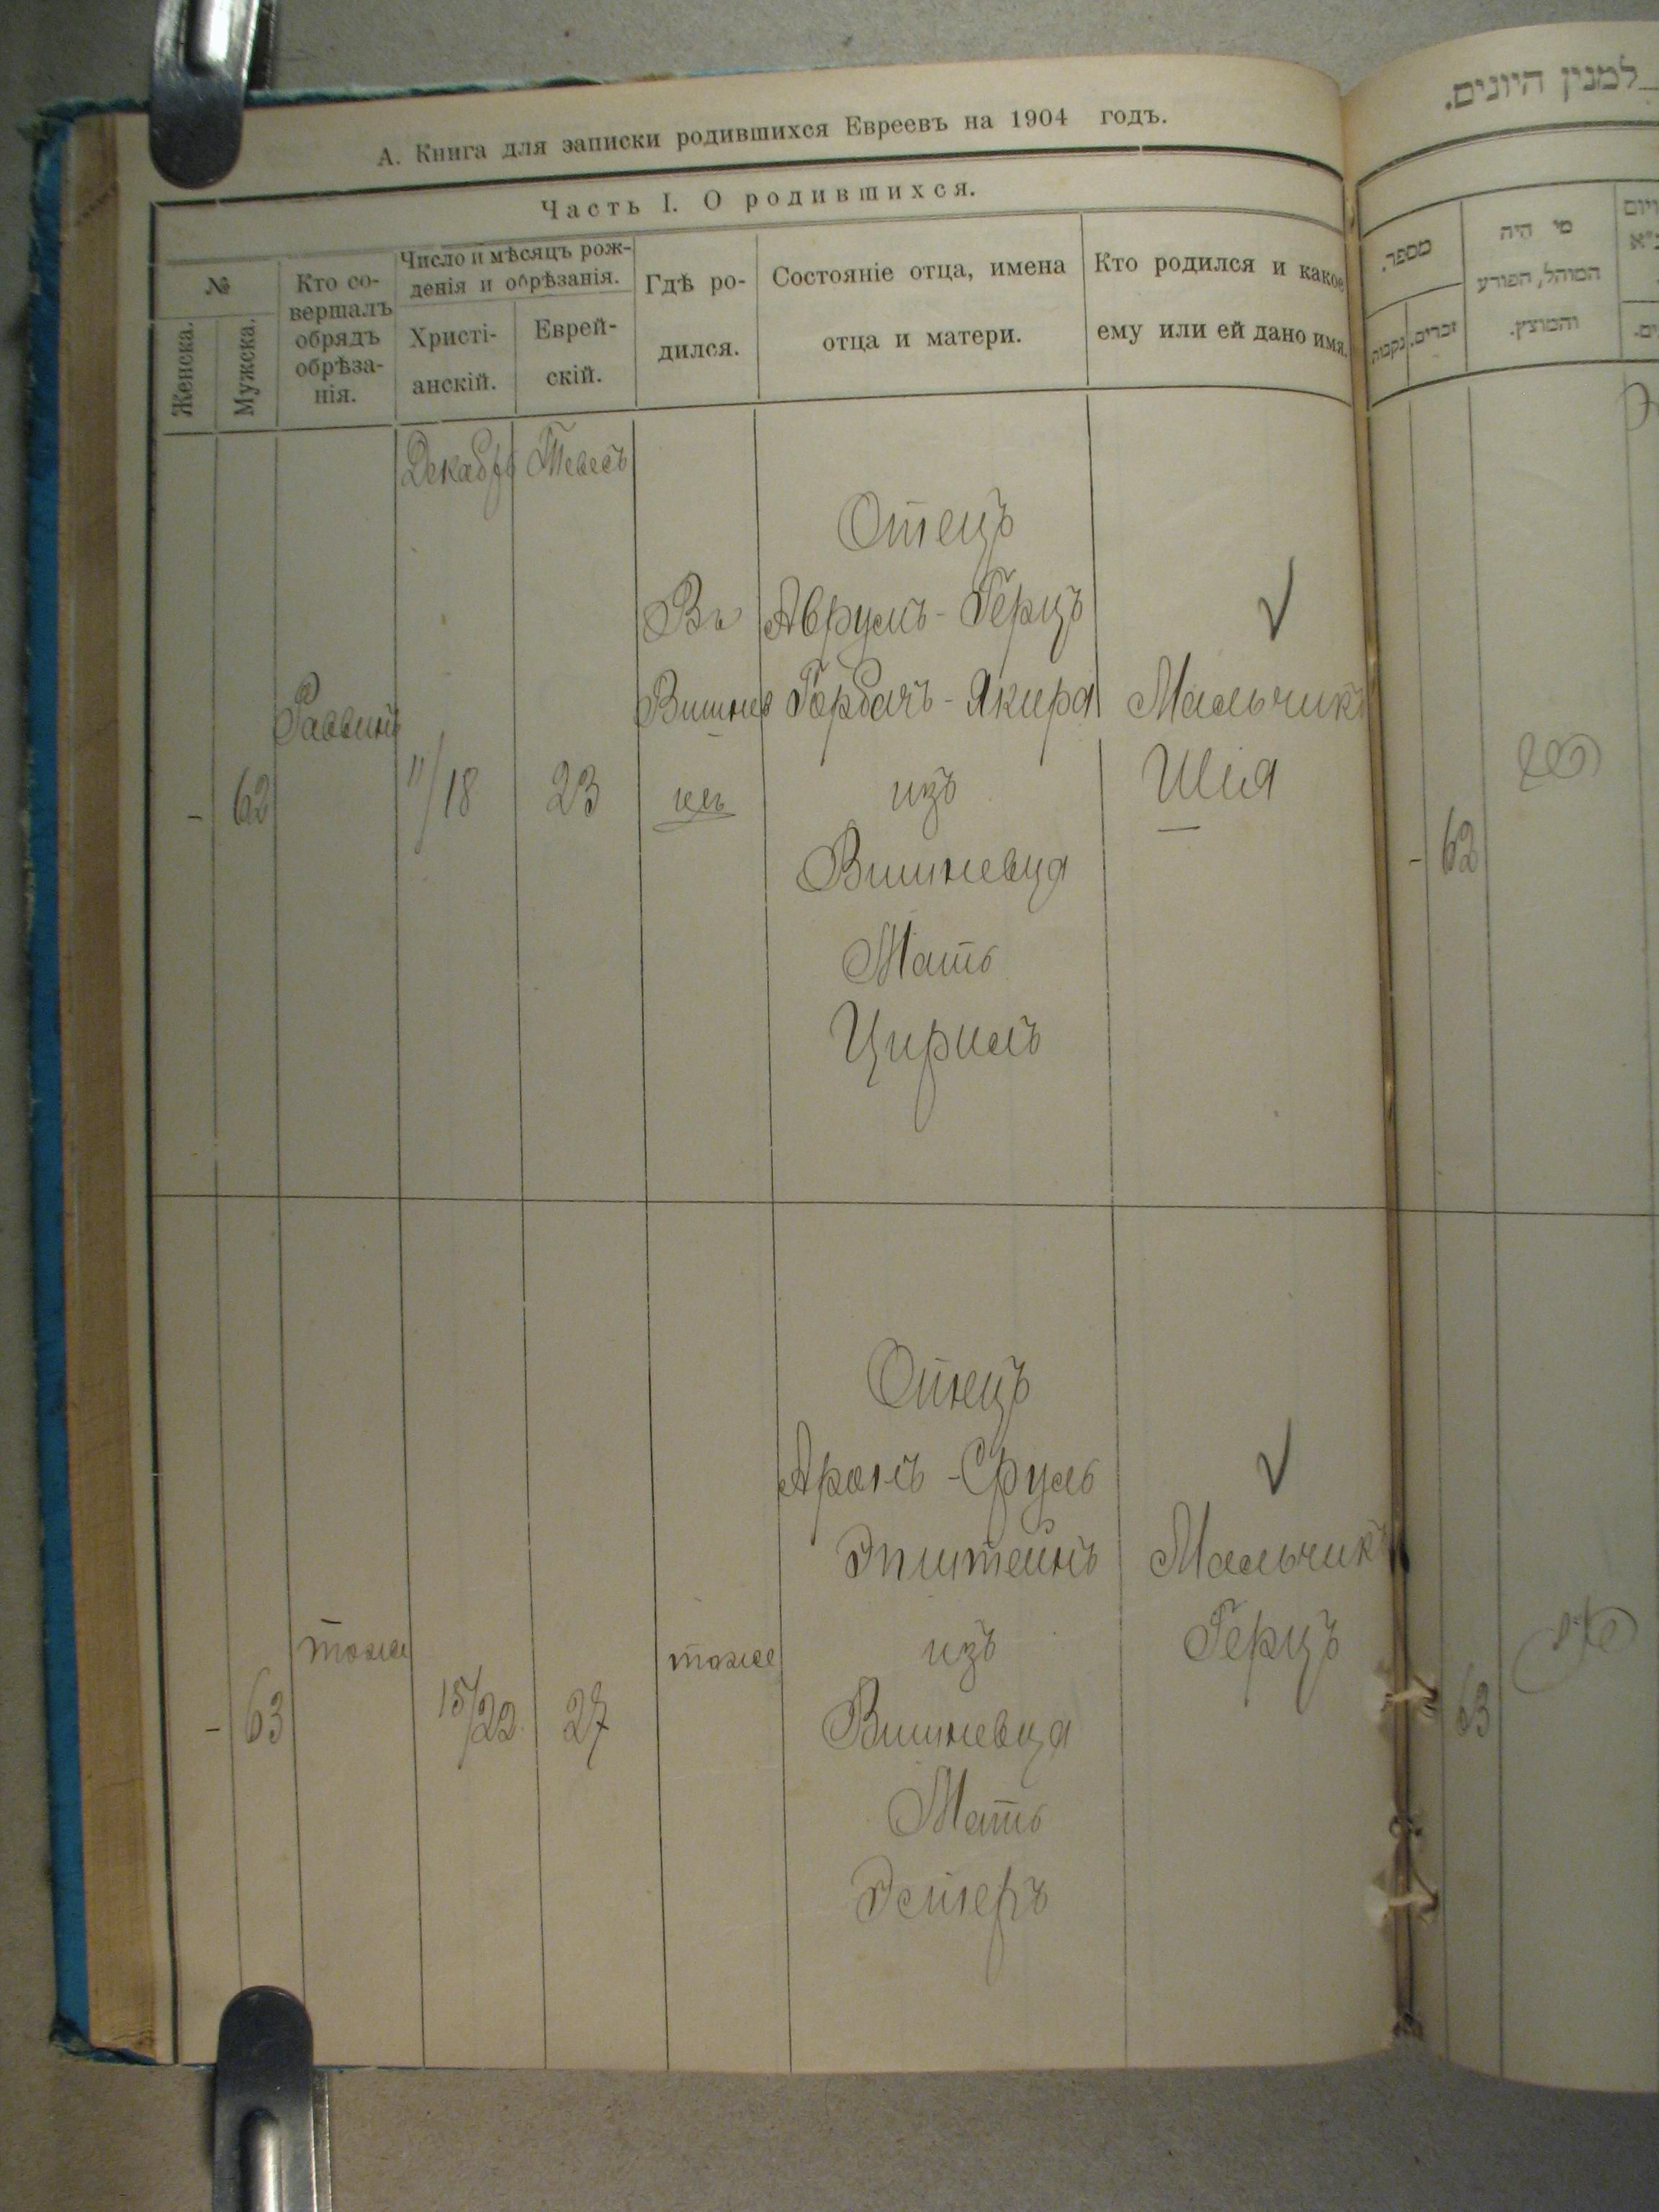 А. Книга для записки родившихся Евреевъ на 1904 годъ.
Часть I. О родившихся.
№
Женска.
Мужска.
Кто со-
вершалъ
обрядъ
обрѣза-
нія.
Число и мѣсяцъ рож-
денія и обрѣзанія.
Христі-
анскій.
Еврей-
скій.
Гдѣ ро-
дился.
Состояніе отца, имена
отца и матери.
Кто родился и какое
ему или ей дано имя.
Декабрь
Тевесъ
-
62
Раввинъ
11/18
23
Въ
Вишнев
цѣ
Отецъ
Аврумъ-Герцъ
Горбачъ-Якира
изъ
Вишневца
Мать
Цирилъ
Мальчикъ
Шія
-
63
тоже
15/22
27
тоже
Отецъ
Аронъ-Сруль
Эпштейнъ
изъ
Вишневца
Мать
Эстеръ
Мальчикъ
Герцъ
למנין היונים.
מספר.
נקבות
זכרים.
מי היה
המוהל, הפורע
והמוצץ.
-
62
63